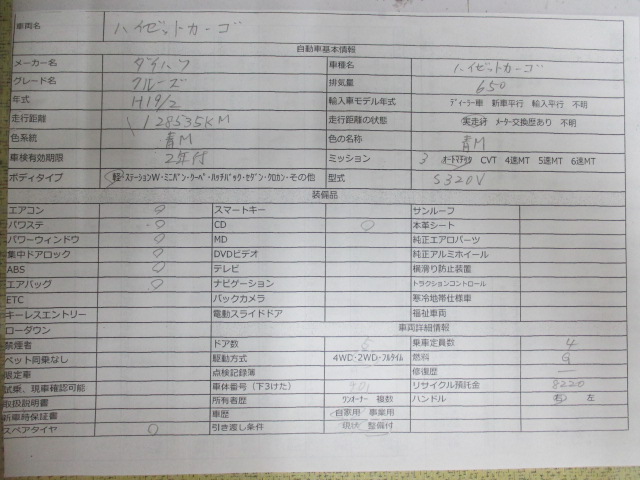 車両名 ハイゼットカーゴ
自動車基本情報
メーカー名 ダイハツ 車種名 ハイゼットカーゴ
グレード名 クルーズ 排気量 650
年式 H19/2 輸入車モデル年式 ディーラー車 新車平行 輸入平行 不明
走行距離 128535KM 走行距離の状態 実走行 メーター交換歴あり 不明
色系統 青M 色の名称 青M
車検有効期限 2年付 ミッション 3 オートマチック CVT 4速MT 5速MT 6速MT
ボディタイプ 軽・ステーションW・ミニバン・クーペ・ハッチバック・セダン・クロカン・その他 型式 S320V
装備品
エアコン ○ スマートキー サンルーフ
パワステ ○ CD ○ 本革シート
パワーウィンドウ ○ MD 純正エアロパーツ
集中ドアロック ○ DVDビデオ 純正アルミホイール
ABS ○ テレビ 横滑り防止装置
エアバッグ ○ ナビゲーション トラクションコントロール
ETC バックカメラ 寒冷地帯仕様車
キーレスエントリー 電動スライドドア 福祉車両
ローダウン 車両詳細情報
禁煙者 ドア数 5 乗車定員数 4
ペット同乗なし 駆動方式 4WD・2WD・フルタイム 燃料 G
限定車 点検記録簿 修復歴 ―
試乗、現車確認可能 車体番号（下3けた） リサイクル預託金 8220
取扱説明書 所有者歴 ワンオーナー 複数 ハンドル 右 左
新車時保証書 車歴 自家用 事業用
スペアタイヤ ○ 引き渡し条件 現状 整備付